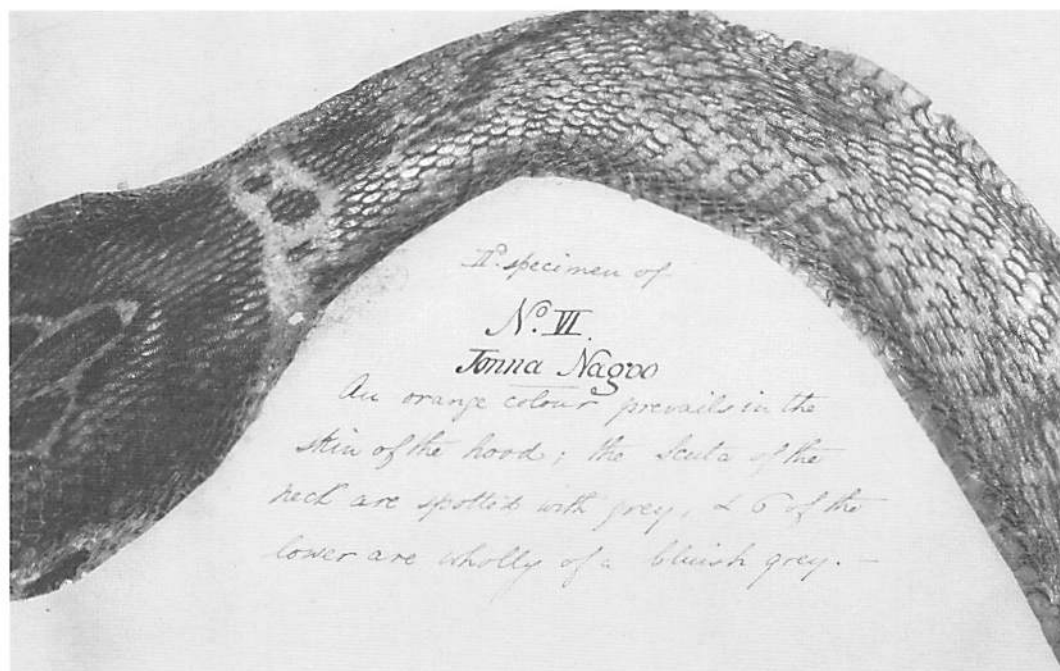 IId. specimen of
No. VI.
Jonna Nagoo
An orange colour prevails in the
skin of the hood; the Scuta of the
neck are spotted with grey, & 6 of the
lower are wholly of a bluish grey. —